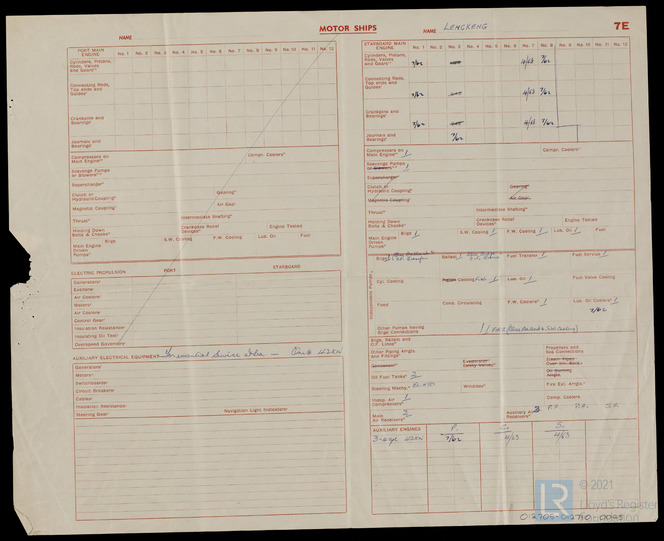 MOTOR SHIPS
7E
NAME
PORT MAIN ENGINE No. 1 No. 2 No. 3 No. 4 No. 5 No. 6 No. 7 No. 8 No. 9 No. 10 No. 11 No. 12
Cylinders, Pistons, Rods, Valves and Gears
Connecting Rods, Top ends and Guides
Crankpins and Bearings
Journals and Bearings
Compressors on Main Engine
Compr. Coolers
Scavenge Pumps or Blowers
Supercharger
Clutch or Hydraulic Coupling
Gearing
Magnetic Coupling
Air Gear
Thrust
Intermediate Shafting
Holding Down Bolts & Chocks
Crankcase Relief Devices
Engine Tested
Main Engine Driven Pumps
Bilge S.W. Cooling F.W. Cooling Lub. Oil Fuel
ELECTRIC PROPULSION PORT STARBOARD
Generators
Exciters
Air Coolers
Motors
Air Coolers
Control Gear
Insulation Resistance
Insulating Oil Test
Overspeed Governors
AUXILIARY ELECTRICAL EQUIPMENT
Generators
Motors
Switchboards
Circuit Breakers
Cables
Insulation Resistance
Steering Gear
Navigation Light Indicators
NAME LENGKENG
STARBOARD MAIN ENGINE No. 1 No. 2 No. 3 No. 4 No. 5 No. 6 No. 7 No. 8 No. 9 No. 10 No. 11 No. 12
Cylinders, Pistons, Rods, Valves and Gears 7/62 4/63 7/62
Connecting Rods, Top ends and Guides 7/62 4/63 7/62
Crankpins and Bearings 7/62 4/63 7/62
Journals and Bearings 7/62
Compressors on Main Engine 1
Compr. Coolers
Scavenge Pumps or Blowers 1
Supercharger
Clutch or Hydraulic Coupling
Gearing
Magnetic Coupling
Air Gear
Thrust
Intermediate Shafting
Holding Down Bolts & Chocks
Crankcase Relief Devices
Engine Tested
Main Engine Driven Pumps
Bilge 1 S.W. Cooling 1 F.W. Cooling 1 Lub. Oil 1 Fuel
Independent Pumps
Bilge Ballast Fuel Transfer 1 Fuel Service 1
Cyl. Cooling Piston Cooling Lub. Oil 1 Fuel Valve Cooling
Feed Cond. Circulating F.W. Coolers 1 Lub. Oil Coolers 1
7/62
Other Pumps having Bilge Connections
Bilge, Ballast and O.F. Lines
Other Piping Arrgts. and Fittings
Propellers and Sea Connections
Condenser
Evaporator Safety Valve
Steam Pipes Over 3in. Bore
Oil Fuel Tanks 2
Oil Burning Arrgts.
Steering Machy.
Windlass
Fire Ext. Arrgts.
Indep. Air Compressors 1
Comp. Coolers
Main Air Receivers 2
Auxiliary Air Receivers 3
AUXILIARY ENGINES P. C. S.
7/62 4/63 4/63
LR
© 2021
Lloyd's Register
Foundation